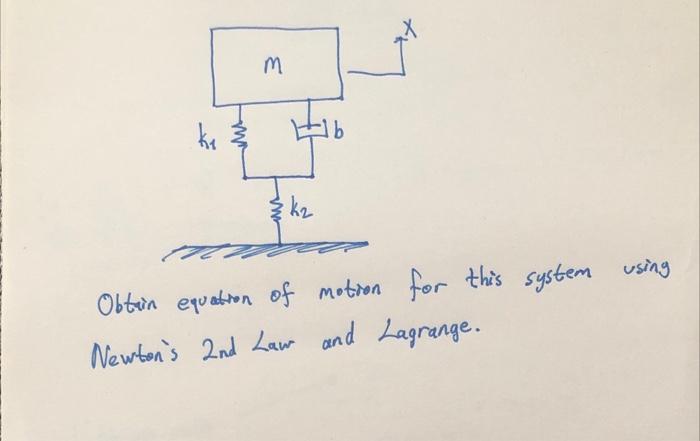 X
m
k1
b
k2
Obtain equation of motion for this system using
Newton's 2nd Law and Lagrange.